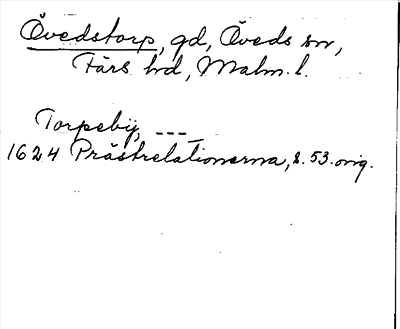 Övedstorp, gd, Öveds sn,
Färs hd, Malm. l.
Torpebÿ, ---
1624 Prästrelationerna, s. 53. orig.